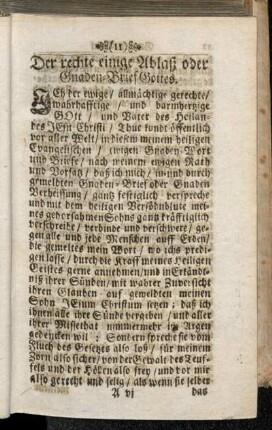 (11)
Der rechte einige Ablaß oder
Gnaden-Brief Gottes.
ICh der ewige / allmächtige gerechte /
wahrhafftige / und barmhertzige
GOtt / und Vater des Heilan-
des JEsu Christi / Thue kundt öffentlich
vor aller Welt / in diesem meinem heiligen
Evangelischen / ewigen Gnaden-Wort
und Briefe / nach meinem ewigen Rath
und Vorsatz / daß ich mich / in und durch
gemeldten Gnaden-Brief oder Gnaden
Verheissung / gantz festiglich verspreche
und mit dem heiligen Versöhnblute mei-
nes gehorsahmen Sohns gantz kräfftiglich
verschreibe / verbinde und verschwere / ge-
gen alle und jede Menschen auff Erden /
die gemeltes mein Wort / wo ichs predi-
gen lasse / durch die Krafft meines Heiligen
Geistes gerne annehmen / und in Erkändt-
niß ihrer Sünden / mit wahrer Zuversicht
ihren Glauben auf gemeldten meinen
Sohn JEsum Christum setzen : daß ich
ihnen alle ihre Sünde vergeben / und aller
ihrer Missethat nimmermehr im Argen
gedencken wil : Sondern spreche sie vom
Fluch des Gesetzes also loß / für meinem
Zorn also sicher / von der Gewalt des Teuf-
fels und der Höllen also frey / und vor mir
also gerecht und selig / als wenn sie selber
A vj das